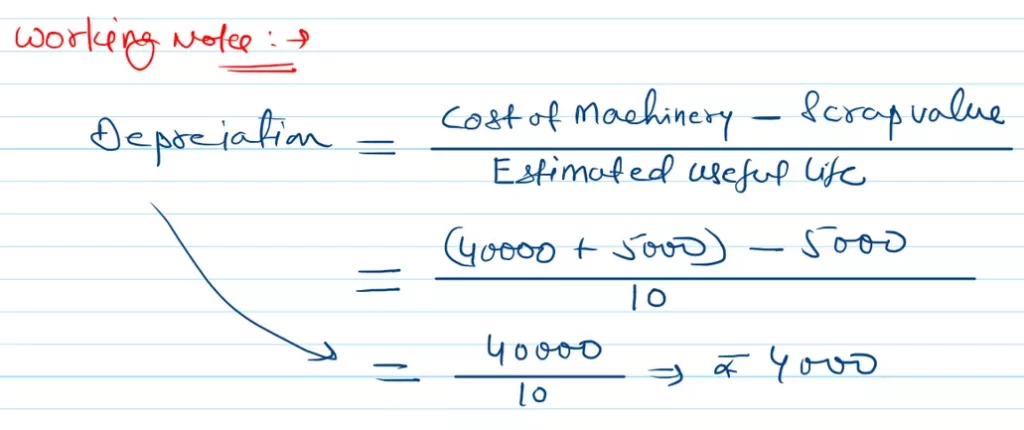 Working Notes : →
Depreciation = Cost of Machinery - Scrap value / Estimated useful life
= (40000 + 5000) - 5000 / 10
= 40000 / 10 ⇒ ₹ 4000